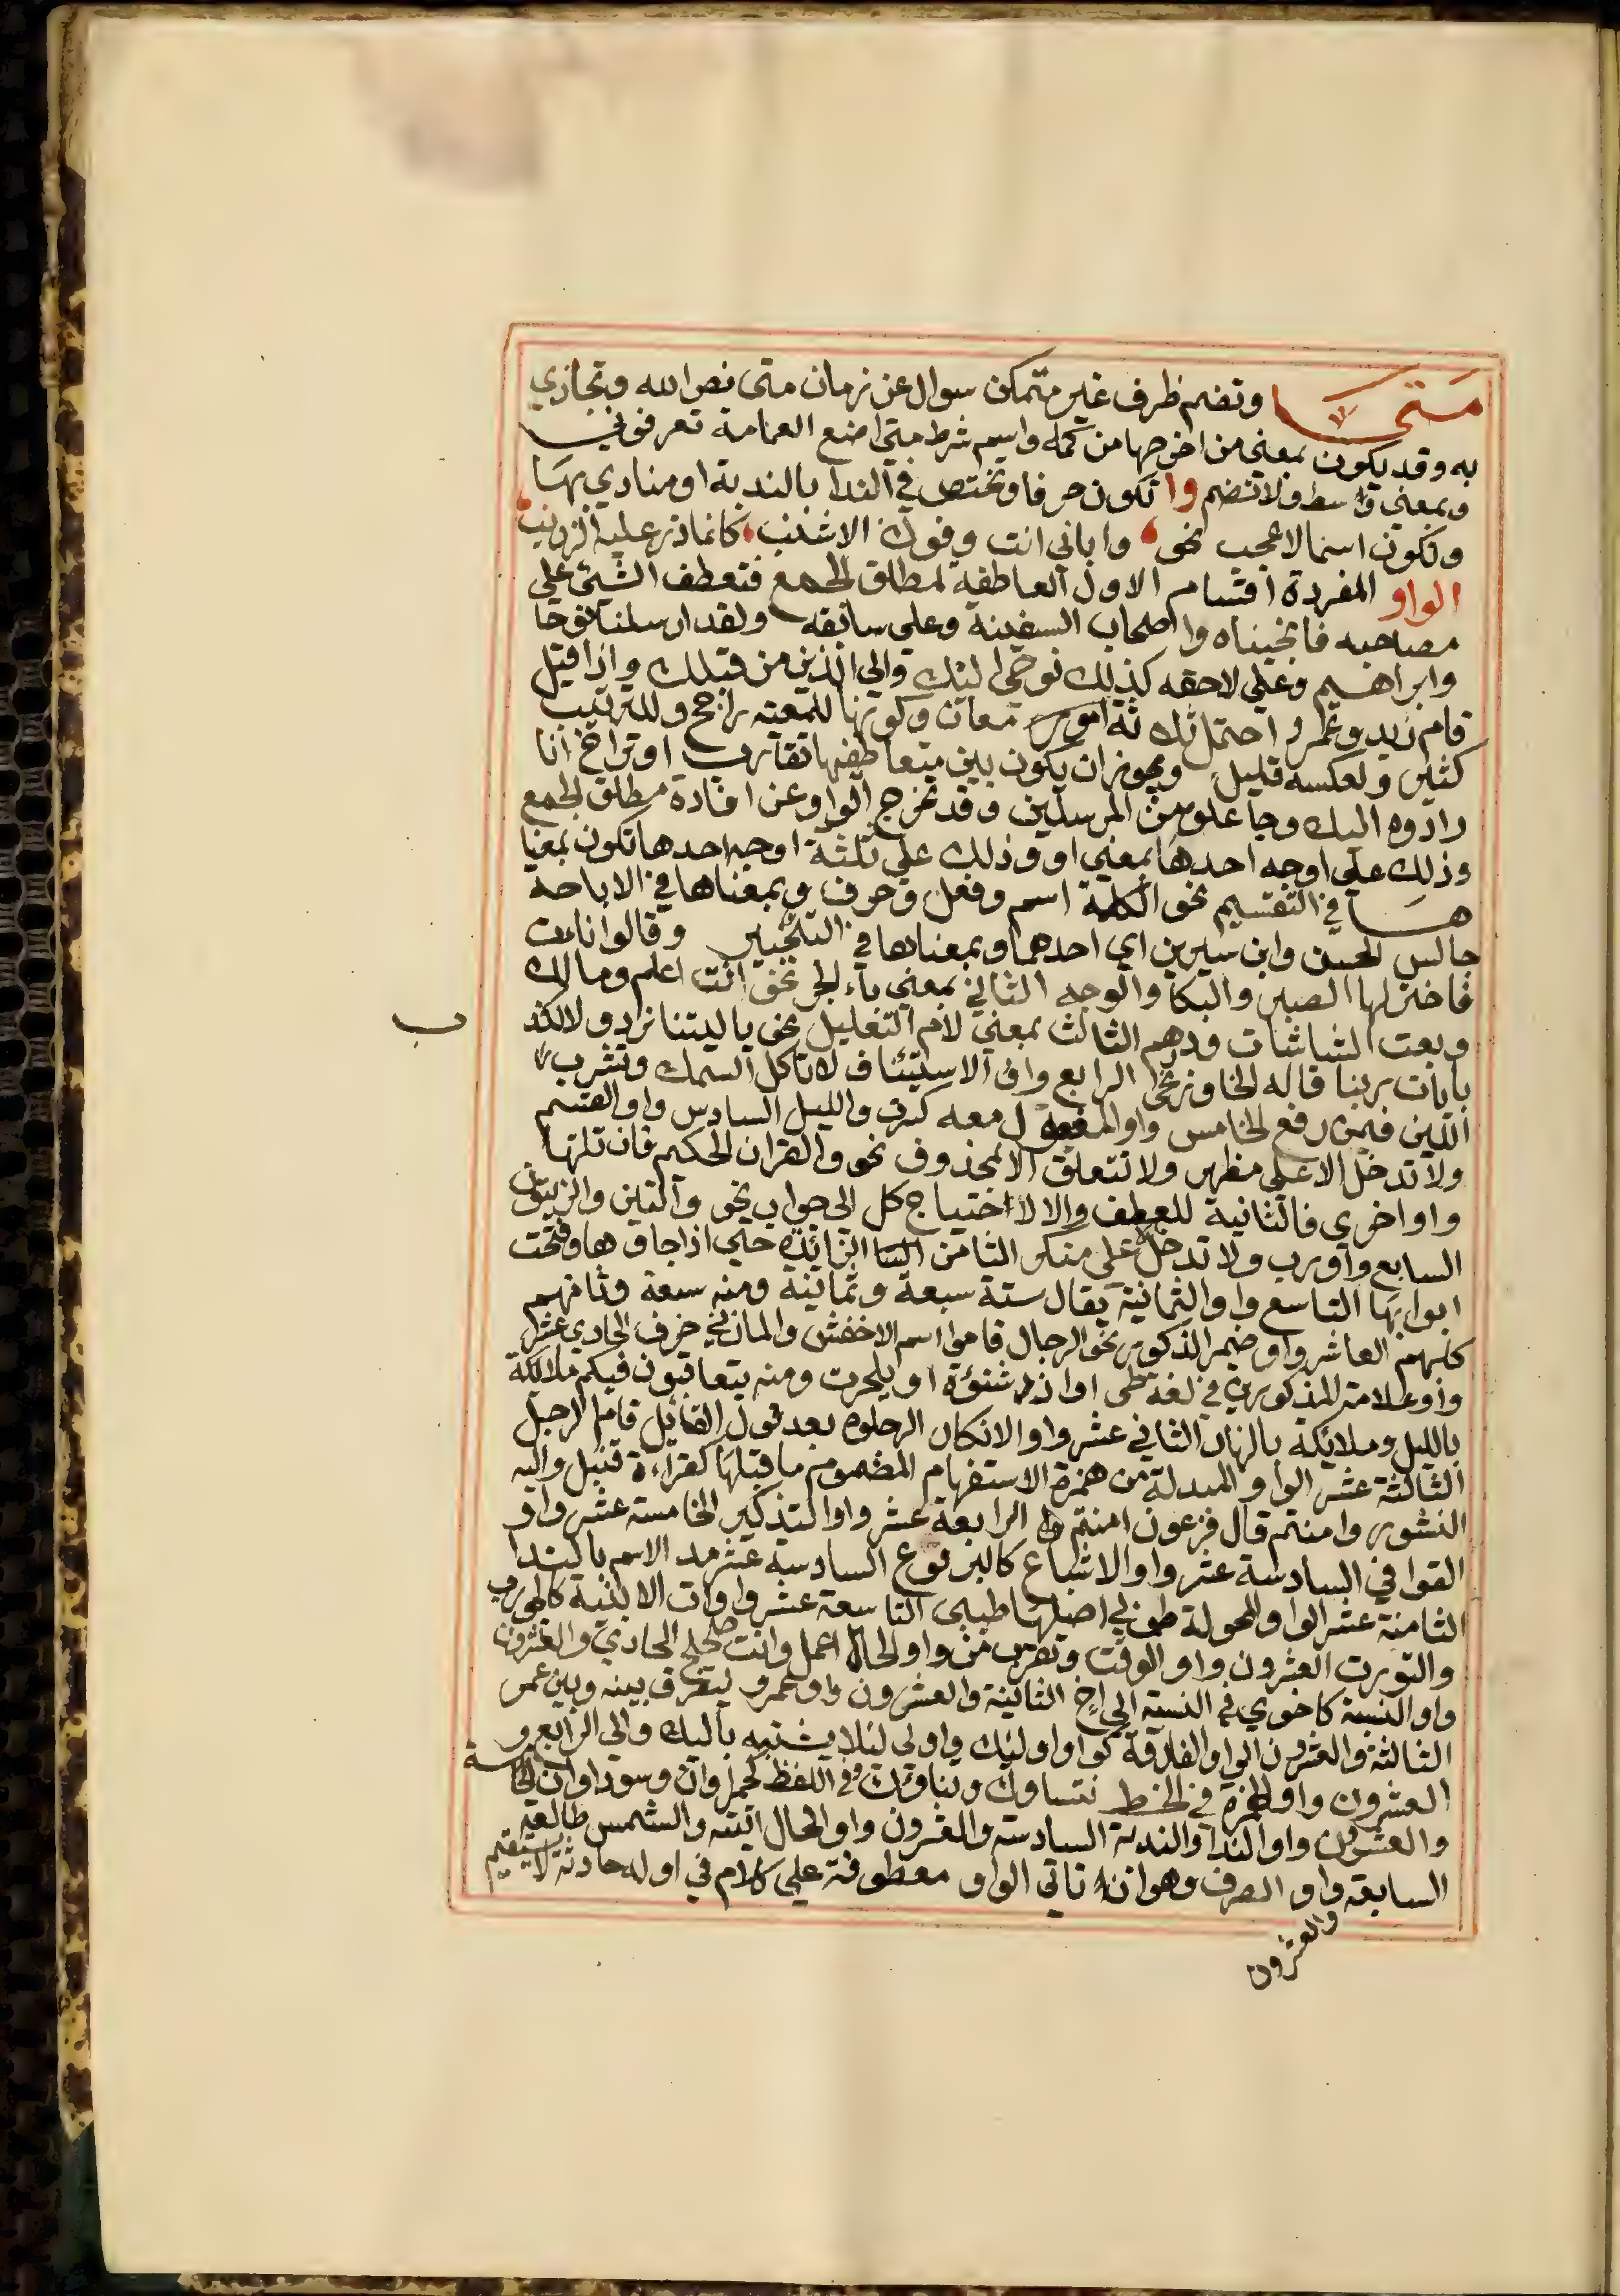 متى وتضم ظرف غير متمكن سوال عن زمان متى نصر الله وتجازي
به وقد يكون بمعنى من اخرجها من كمه واسم شرط متى اضع العمامة تعرفوني
وبمعنى وسط ولا تضم وا تكون حرفا وتختص في الندا بالندبة او منادي بها
وتكون اسما لاعجب نحو وا بابي انت وفوك الاشنب كانما ذر عليه الزرنب
الواو المفردة اقسام الاول العاطفة لمطلق الجمع فتعطف الشيئ على
مصاحبه فانجيناه واصحاب السفينة وعلى سابقه ولقد ارسلنا نوحا
وابراهيم وعلى لاحقه كذلك نوحى اليك والي الذين من قبلك واذا قيل
قام زيد وعمرو احتمل ثلثة امور معان وكونها للمعته راجح وللترتيب
كثير ولعكسه قليل ويجوز ان يكون بين متعاطفيها تقارب او تراخ انا
رادوه اليك وجاعلوه من المرسلين وقد تخرج الواو عن افادة مطلق الجمع
وذلك على اوجه احدها بمعنى او وذلك على ثلثة اوجه احدها تكون بمعنا
ها في التقسيم نحو الكلمة اسم وفعل وحرف وبمعناها في الاباحة
جالس الحسن وابن سيرين اي احدهما وبمعناها في التخيير وقالوا نات
فاختر لها الصبر والبكا والوجه الثاني بمعنى باء الجر نحو انت اعلم ومالك
وبعت الشاشات ودرهم الثالث بمعنى لام التعليل نحو يا ليتنا نرد ولا نكذ
ب
بايات ربنا قاله الخارزنجى الرابع واو الاستئناف لا تاكل السمك وتشرب
اللبن فيمن رفع الخامس واو المفعول معه كسرت والليل السادس واو القسم
ولا تدخل الا على مظهر ولا تتعلق الا بمحذوف نحو والقران الحكيم فان تلتها
واو اخرى فالثانية للعطف والا لاحتياج كل الى جواب نحو والتين والزيتون
السابع واو رب ولا تدخل على منكر الثامن الزائدة حتى اذا جاؤها وفتحت
ابوابها التاسع واو الثمانية يقال ستة سبعة وثمانية ومنه سبعة وثامنهم
كلبهم العاشر واو ضمير الذكور نحو الرجال قاموا اسم الاخفش والمازني حرف الحادي عشر
واو علامة المذكورين في لغة طي او ازد شنؤة او بلحرث ومنه يتعاقبون فيكم ملائكة
بالليل وملائكة بالنهار الثاني عشر واو الانكار الرجلوه بعد قول القائل قام الرجل
الثالثة عشر الواو المبدلة من همزة الاستفهام المضموم ما قبلها كقراءة قنبل واليه
النشور وامنتم قال فرعون امنتم الرابعة عشر واو التذكير الخامسة عشر واو
القوافي السادسة عشر واو الاشباع كالبرقوع السادسة عشر مد الاسم بالندا
الثامنة عشر الواو المحولة طوبى اصلها طيبى التاسعة عشر واوات الابنية كالجورب
والتورب العشرون واو الوقت وتقرب من واو الحال اعمل وانت صحيح الحادي والعشرون
واو النسبة كاخوي في النسبة الى اخ الثانية والعشرون واو عمرو ليتفرق بينه وبين عمر
الثالثة والعشرون الواو الفارقة كواو اوليك واولى لئلا يشتبه باليك والى الرابع و
العشرون واو الهمزة في الخط نساوك وشاوك وفي اللفظ كحمراوان وسوداوان الخامسة
والعشرون واو الندا والندبة السادسة والعشرون واو الحال اتيته والشمس طالعة
السابعة واو الصرف وهو ان تاتي الواو معطوفة على كلام في اوله حادثة لا يستقيم
والعشرون